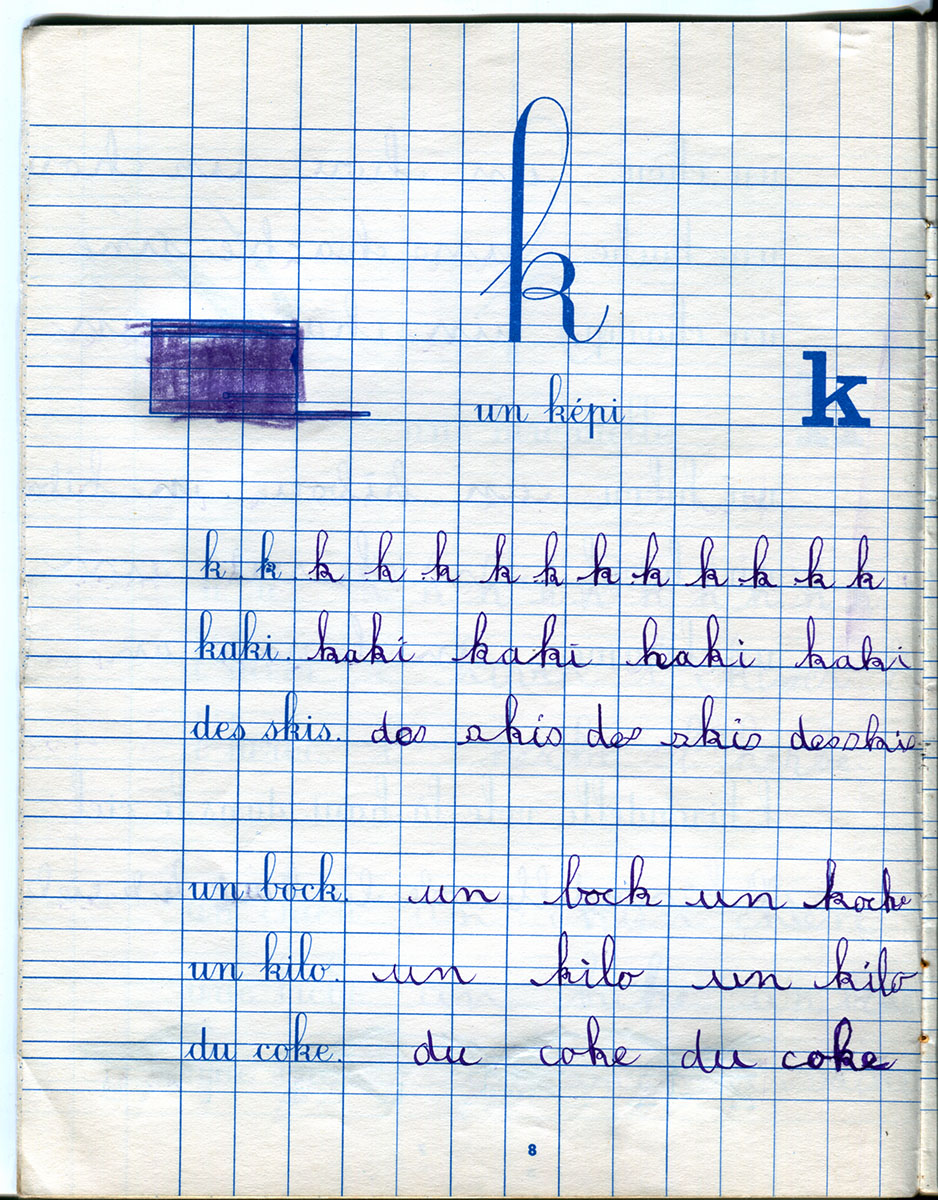 k
k
un képi
k k k k k k k k k k k k k
kaki. kaki kaki kaki kaki
des skis. des skis des skis des skis
un bock. un bock un kock
un kilo. un kilo un kilo
du coke. du coke du coke
8